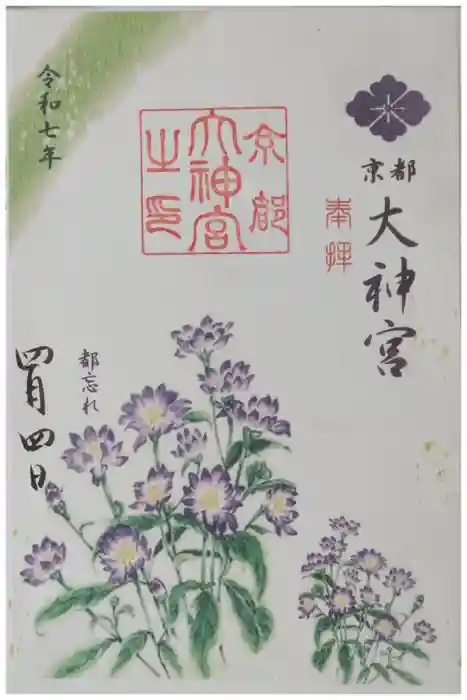 京都
大神宮
奉拝
京都
大神宮
之印
令和七年
都忘れ
四月四日